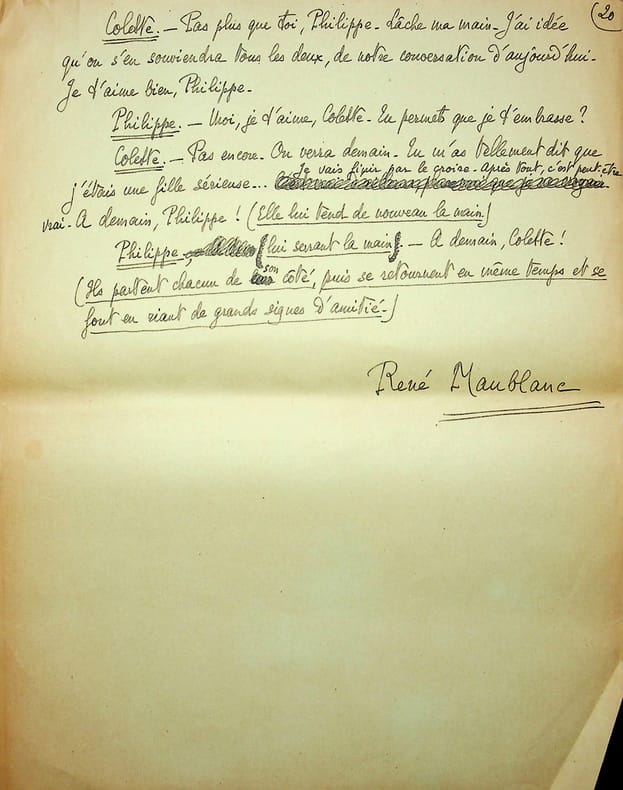 (20
Colette. — Pas plus que toi, Philippe. Lâche ma main. J'ai idée
qu'on s'en souviendra tous les deux, de notre conversation d'aujourd'hui.
Je t'aime bien, Philippe.
Philippe. — Moi, je t'aime, Colette. Tu permets que je t'embrasse ?
Colette. — Pas encore. On verra demain. Tu m'as tellement dit que
j'étais une fille sérieuse... Je vais finir par le croire. Après tout, c'est peut-être
vrai. A demain, Philippe ! (Elle lui tend de nouveau la main)
Philippe (lui serrant la main). — A demain, Colette !
(Ils partent chacun de son côté, puis se retournent en même temps et se
font en riant de grands signes d'amitié.)
René Maublanc